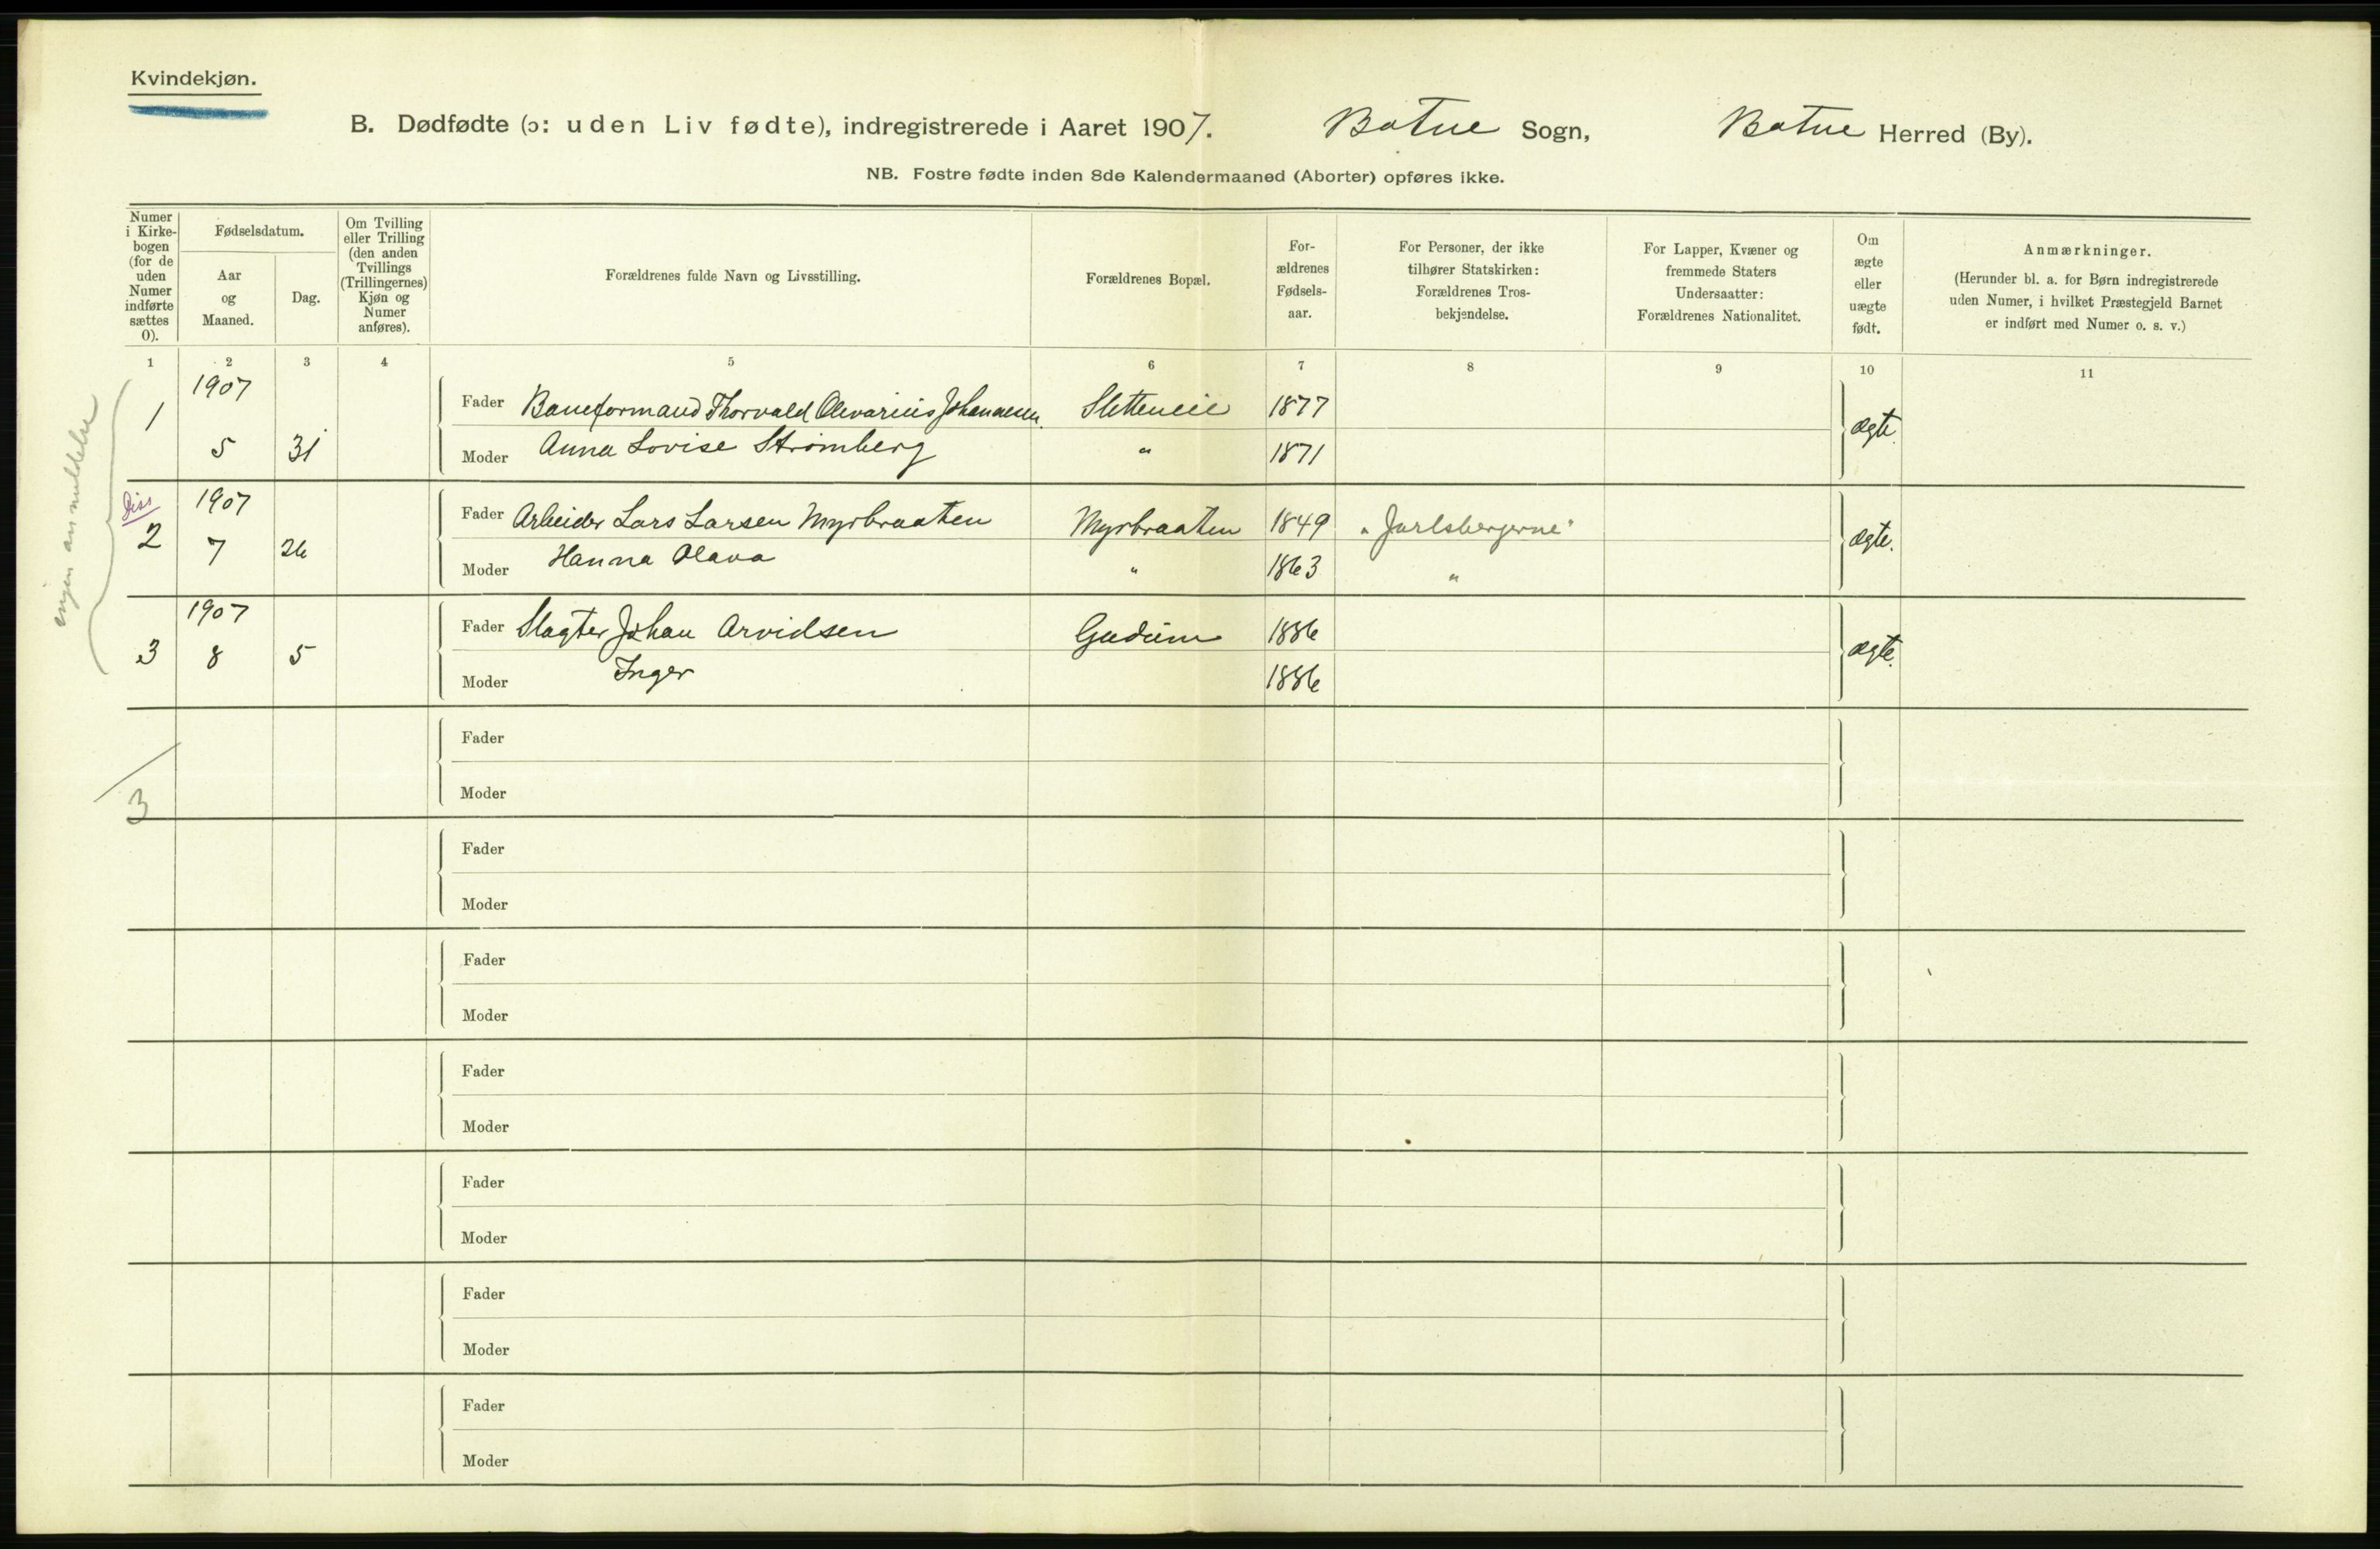 Kvindekjøn.
B. Dødfødte (ɔ: uden Liv fødte), indregistrerede i Aaret 1907. Botne Sogn, Botne Herred (By).
NB. Fostre fødte inden 8de Kalendermaaned (Aborter) opføres ikke.
Numer i Kirkebogen (for de uden Numer indførte sættes 0).
Fødselsdatum.
Aar og Maaned.
Dag.
Om Tvilling eller Trilling (den anden Tvillings (Trillingernes) Kjøn og Numer anføres).
Forældrenes fulde Navn og Livsstilling.
Forældrenes Bopæl.
Forældrenes Fødselsaar.
For Personer, der ikke tilhører Statskirken: Forældrenes Trosbekjendelse.
For Lapper, Kvæner og fremmede Staters Undersaatter: Forældrenes Nationalitet.
Om ægte eller uægte født.
Anmærkninger.
(Herunder bl. a. for Børn indregistrerede uden Numer, i hvilket Præstegjeld Barnet er indført med Numer o. s. v.)
1 2 3 4 5 6 7 8 9 10 11
ingen anmeldelse
1907
1 Fader Baneformand Thorvald Olevarius Johannesen 1877 ægte.
5 31 Moder Anna Lovise Strömberg " 1871
Diss 1907
2 Fader Arbeider Lars Larsen Myrbraaten Myrbraaten 1849 "Jarlsbergerne" ægte.
7 26 Moder Hanna Olava " 1863 "
1907
3 Fader Slagter Johan Arvidsen Gudum 1886 ægte.
8 5 Moder Inger 1886
Fader
Moder
3
Fader
Moder
Fader
Moder
Fader
Moder
Fader
Moder
Fader
Moder
Fader
Moder